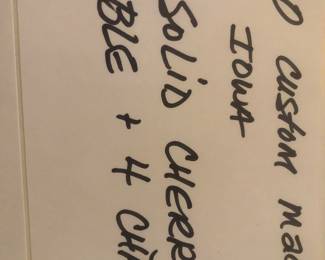 O CUSTOM MAD
IOWA
SOLID CHERR
BLE + 4 CHA